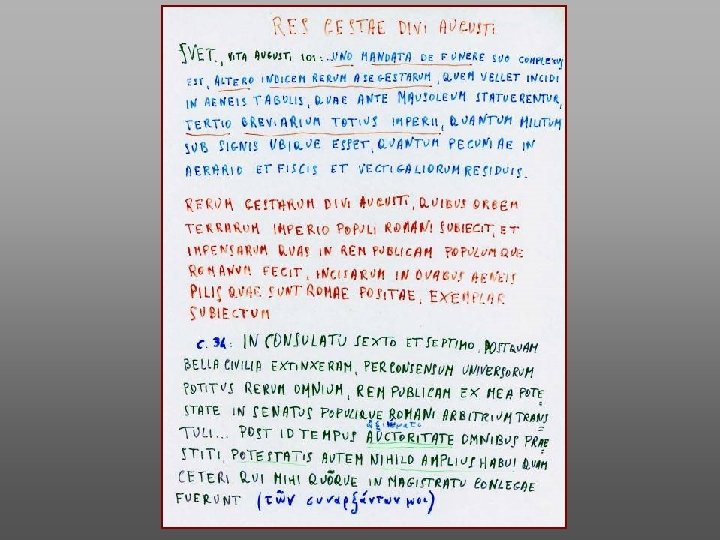 RES GESTAE DIVI AUGUSTI
SVET., VITA AUGUSTI 101: ...UNO MANDATA DE FUNERE SUO COMPLEXUS
EST, ALTERO INDICEM RERUM A SE GESTARUM, QUEM VELLET INCIDI
IN AENEIS TABULIS, QUAE ANTE MAUSOLEUM STATUERENTUR,
TERTIO BREVIARIUM TOTIUS IMPERII, QUANTUM MILITUM
SUB SIGNIS UBIQUE ESSET, QUANTUM PECUNIAE IN
AERARIO ET FISCIS ET VECTIGALIORUM RESIDUIS.
RERUM GESTARUM DIVI AUGUSTI, QUIBUS ORBEM
TERRARUM IMPERIO POPULI ROMANI SUBIECIT, ET
IMPENSARUM QUAS IN REM PUBLICAM POPULUMQUE
ROMANUM FECIT, INCISARUM IN DUABUS AENEIS
PILIS QUAE SUNT ROMAE POSITAE, EXEMPLAR
SUBIECTUM
C. 34: IN CONSULATU SEXTO ET SEPTIMO, POSTQUAM
BELLA CIVILIA EXTINXERAM, PER CONSENSUM UNIVERSORUM
POTITUS RERUM OMNIUM, REM PUBLICAM EX MEA POTE=
STATE IN SENATUS POPULIQUE ROMANI ARBITRIUM TRANS=
ἀξιώματι
TULI... POST ID TEMPUS AUCTORITATE OMNIBUS PRAE=
STITI, POTESTATIS AUTEM NIHILO AMPLIUS HABUI QUAM
CETERI QUI MIHI QUŌQUE IN MAGISTRATU CONLEGAE
FUERUNT (τῶν συναρξάντων μοι)